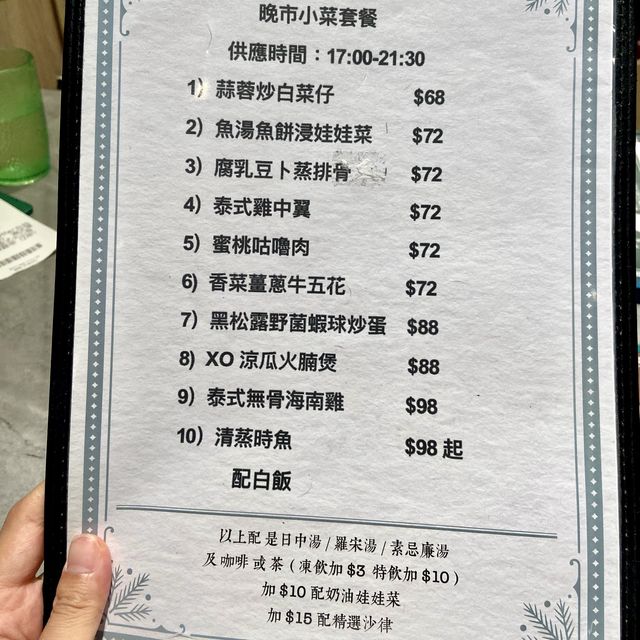 晚市小菜套餐
供應時間：17:00-21:30
1）蒜蓉炒白菜仔 $68
2）魚湯魚餅浸娃娃菜 $72
3）腐乳豆卜蒸排骨 $72
4）泰式雞中翼 $72
5）蜜桃咕嚕肉 $72
6）香菜薑蔥牛五花 $72
7）黑松露野菌蝦球炒蛋 $88
8）XO 涼瓜火腩煲 $88
9）泰式無骨海南雞 $98
10）清蒸時魚 $98 起
配白飯
以上配 是日中湯 / 羅宋湯 / 素忌廉湯
及 咖啡 或 茶（凍飲加 $3 特飲加 $10）
加 $10 配奶油娃娃菜
加 $15 配精選沙律